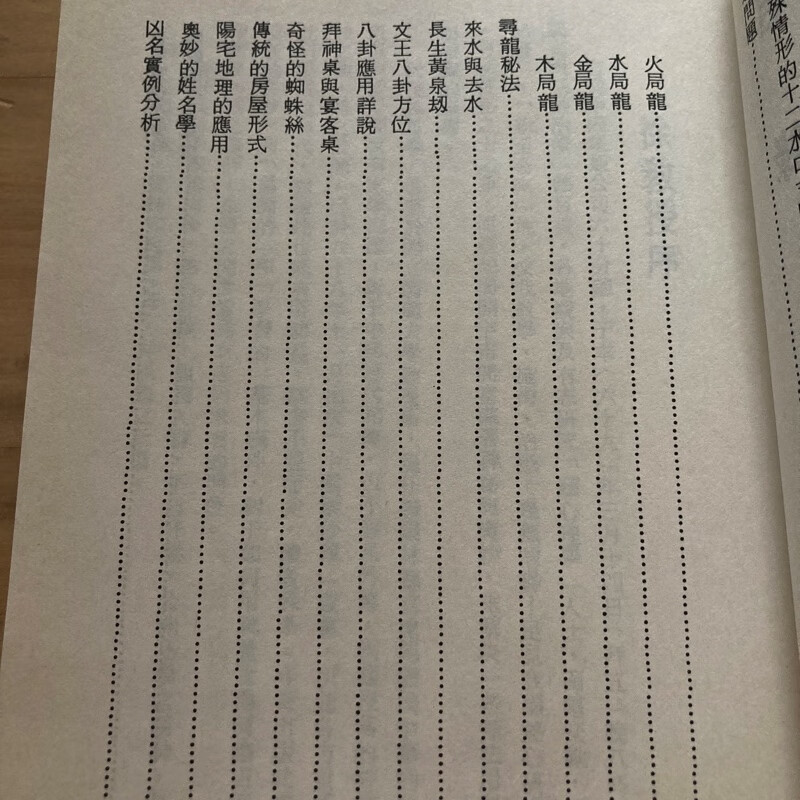 殊情形的十二水口
問題
火局龍
水局龍
金局龍
木局龍
尋龍秘法
來水與去水
長生黃泉刼
文王八卦方位
八卦應用詳說
拜神桌與宴客桌
奇怪的蜘蛛絲
傳統的房屋形式
陽宅地理的應用
奧妙的姓名學
凶名實例分析